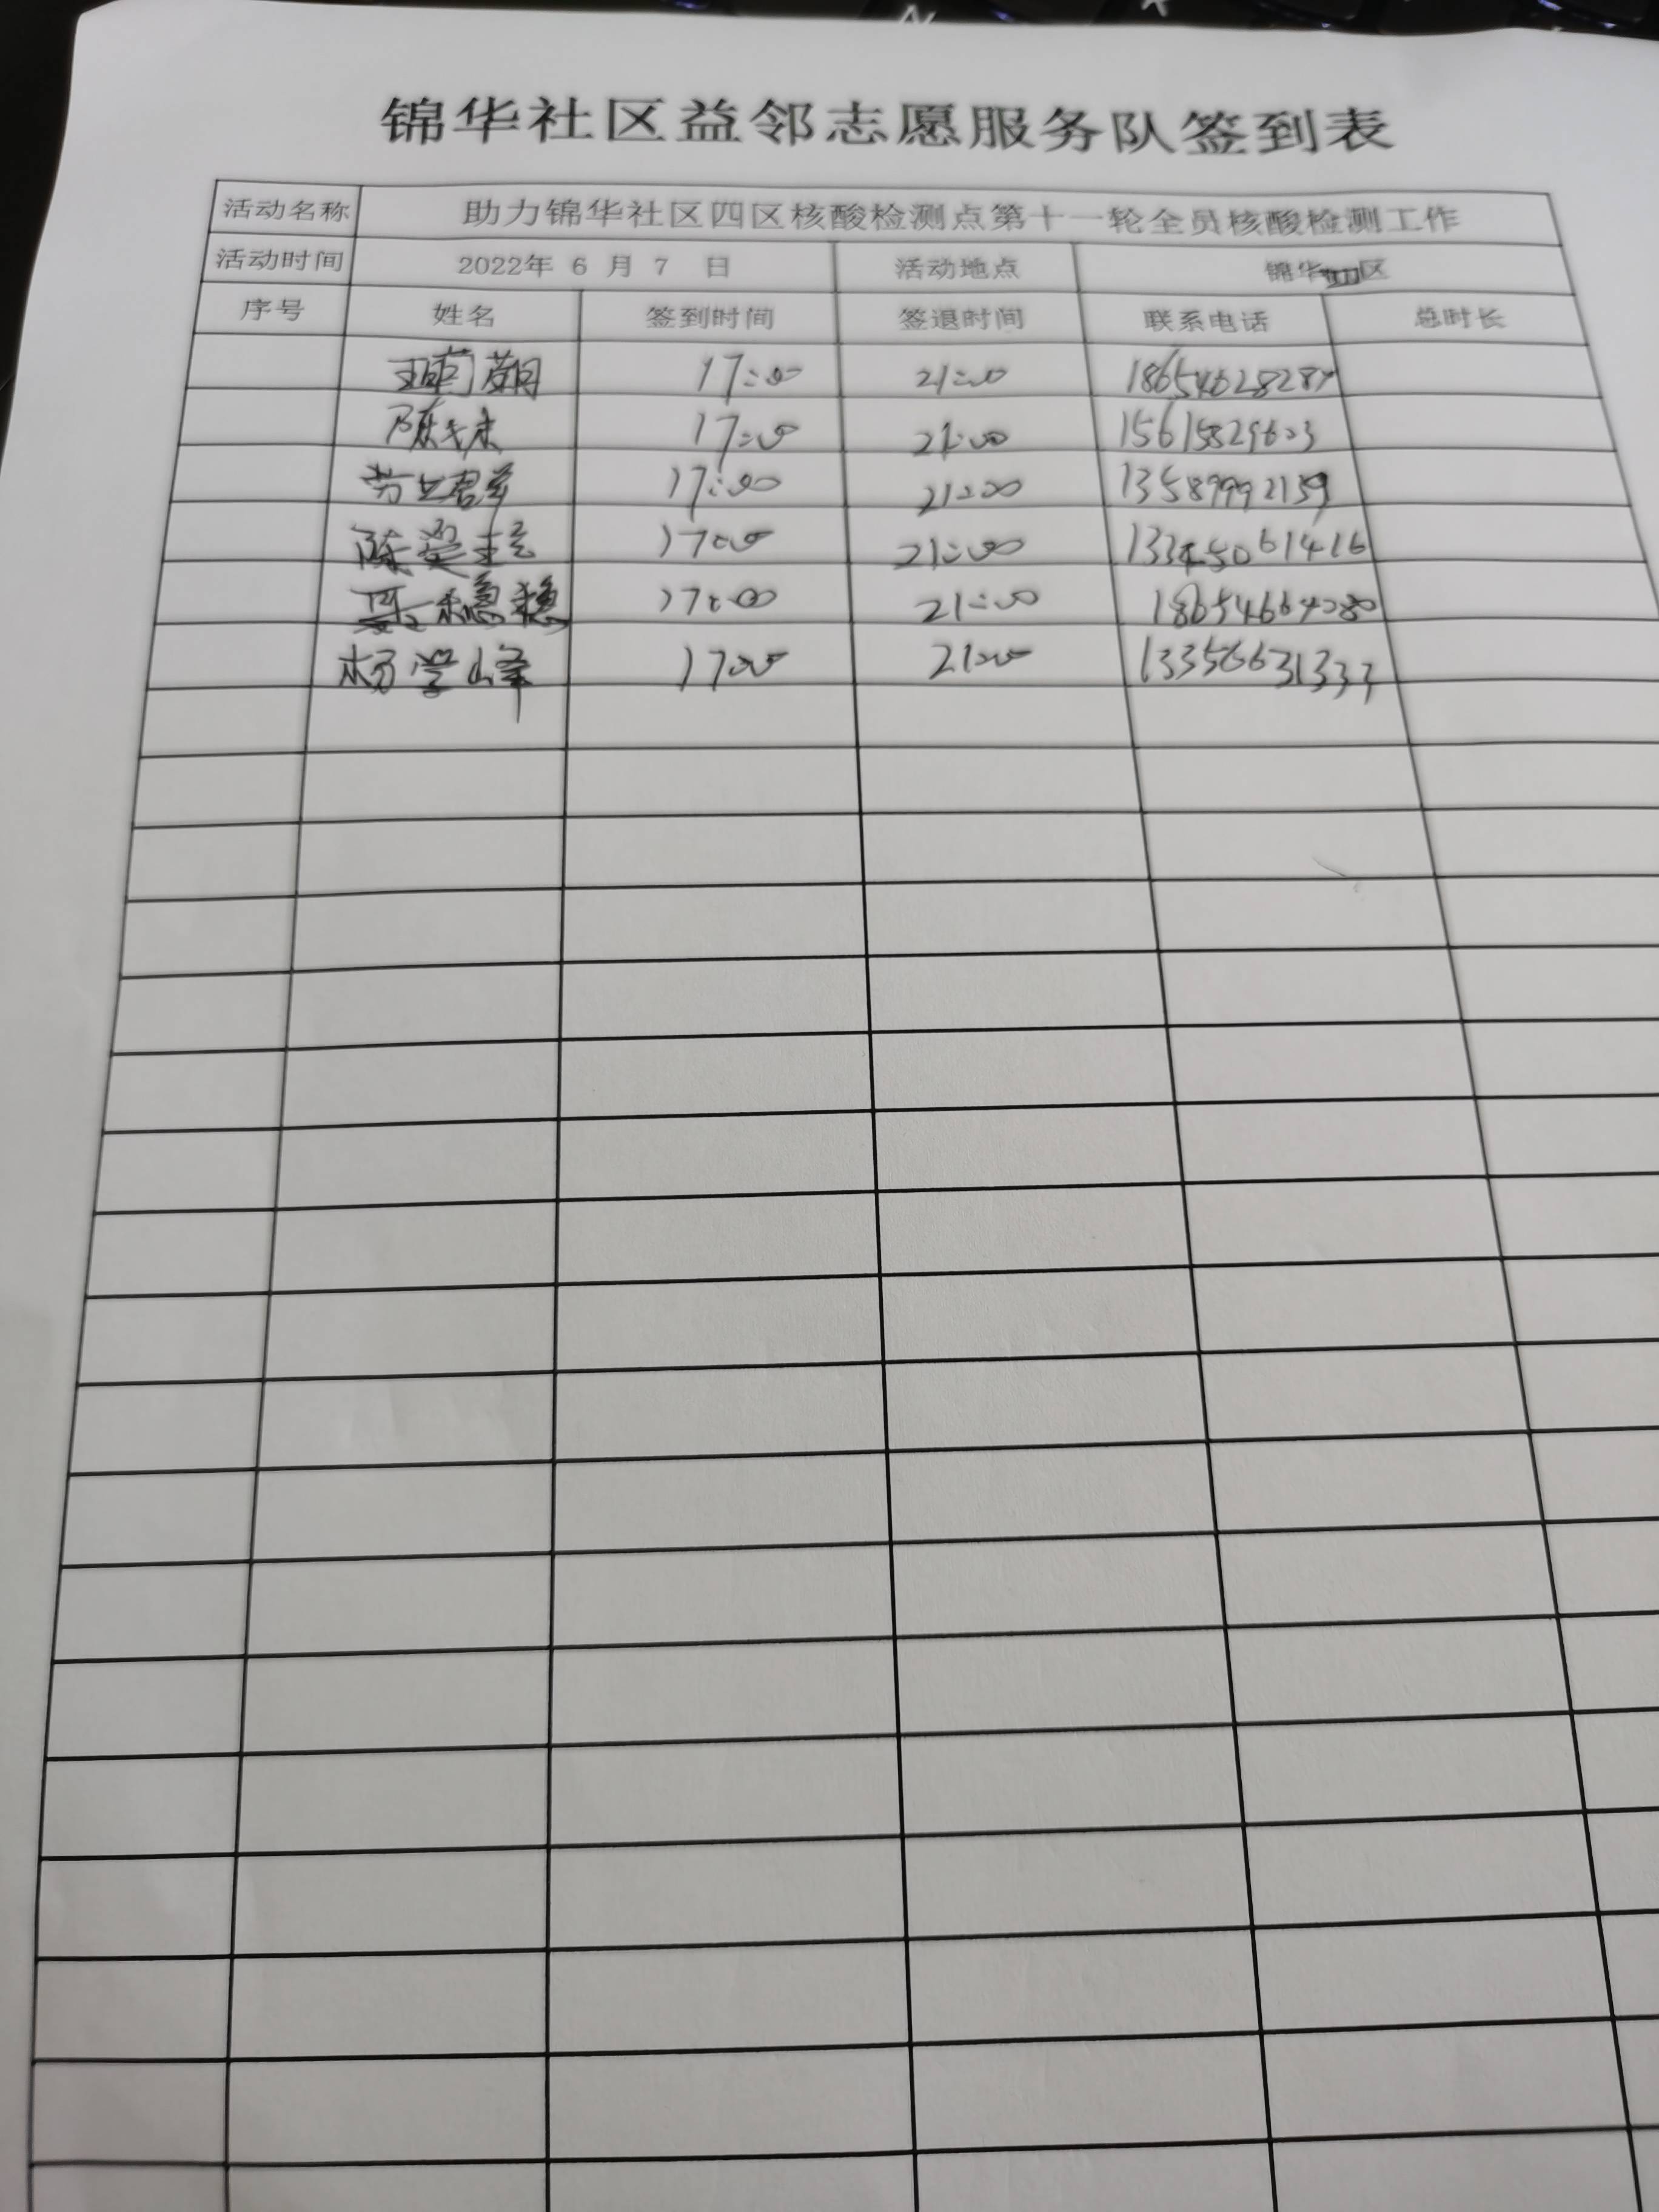 锦华社区益邻志愿服务队签到表
活动名称 助力锦华社区四区核酸检测点第十一轮全员核酸检测工作
活动时间 2022年 6 月 7 日 活动地点 锦华四区
序号 姓名 签到时间 签退时间 联系电话 总时长
17:00 21:00
17:00 21:00 15615829603
17:00 21:00 13589992139
17:00 21:00
17:00 21:00 18654664080
杨学峰 17:00 21:00 13356631333